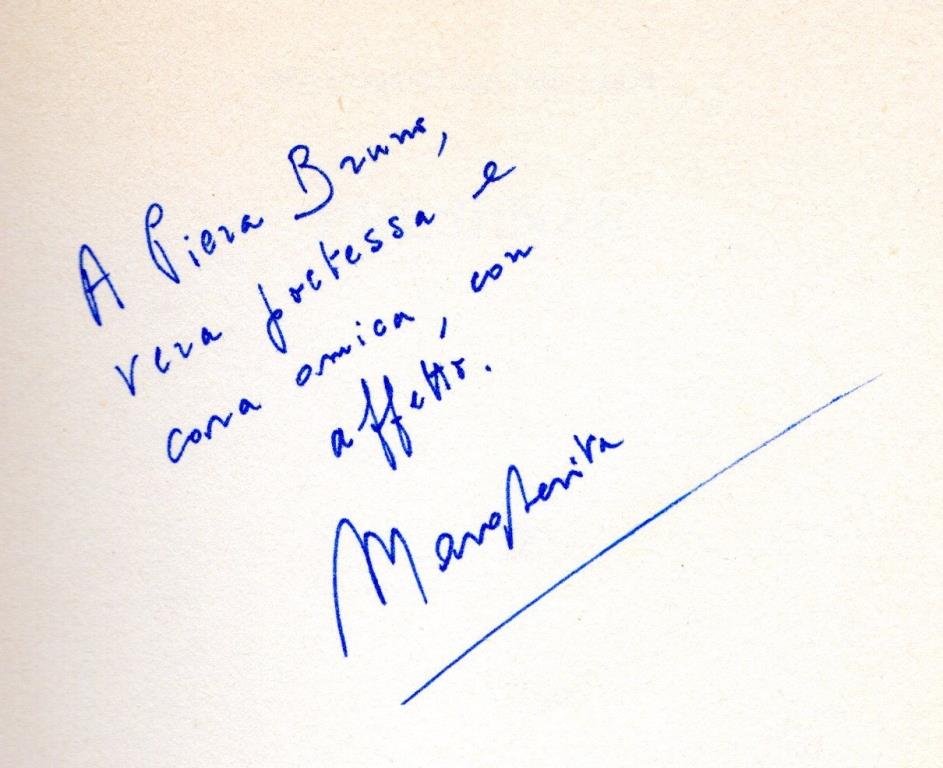 A Piera Bruno,
vera poetessa e
cara amica, con
affetto.
Margherita